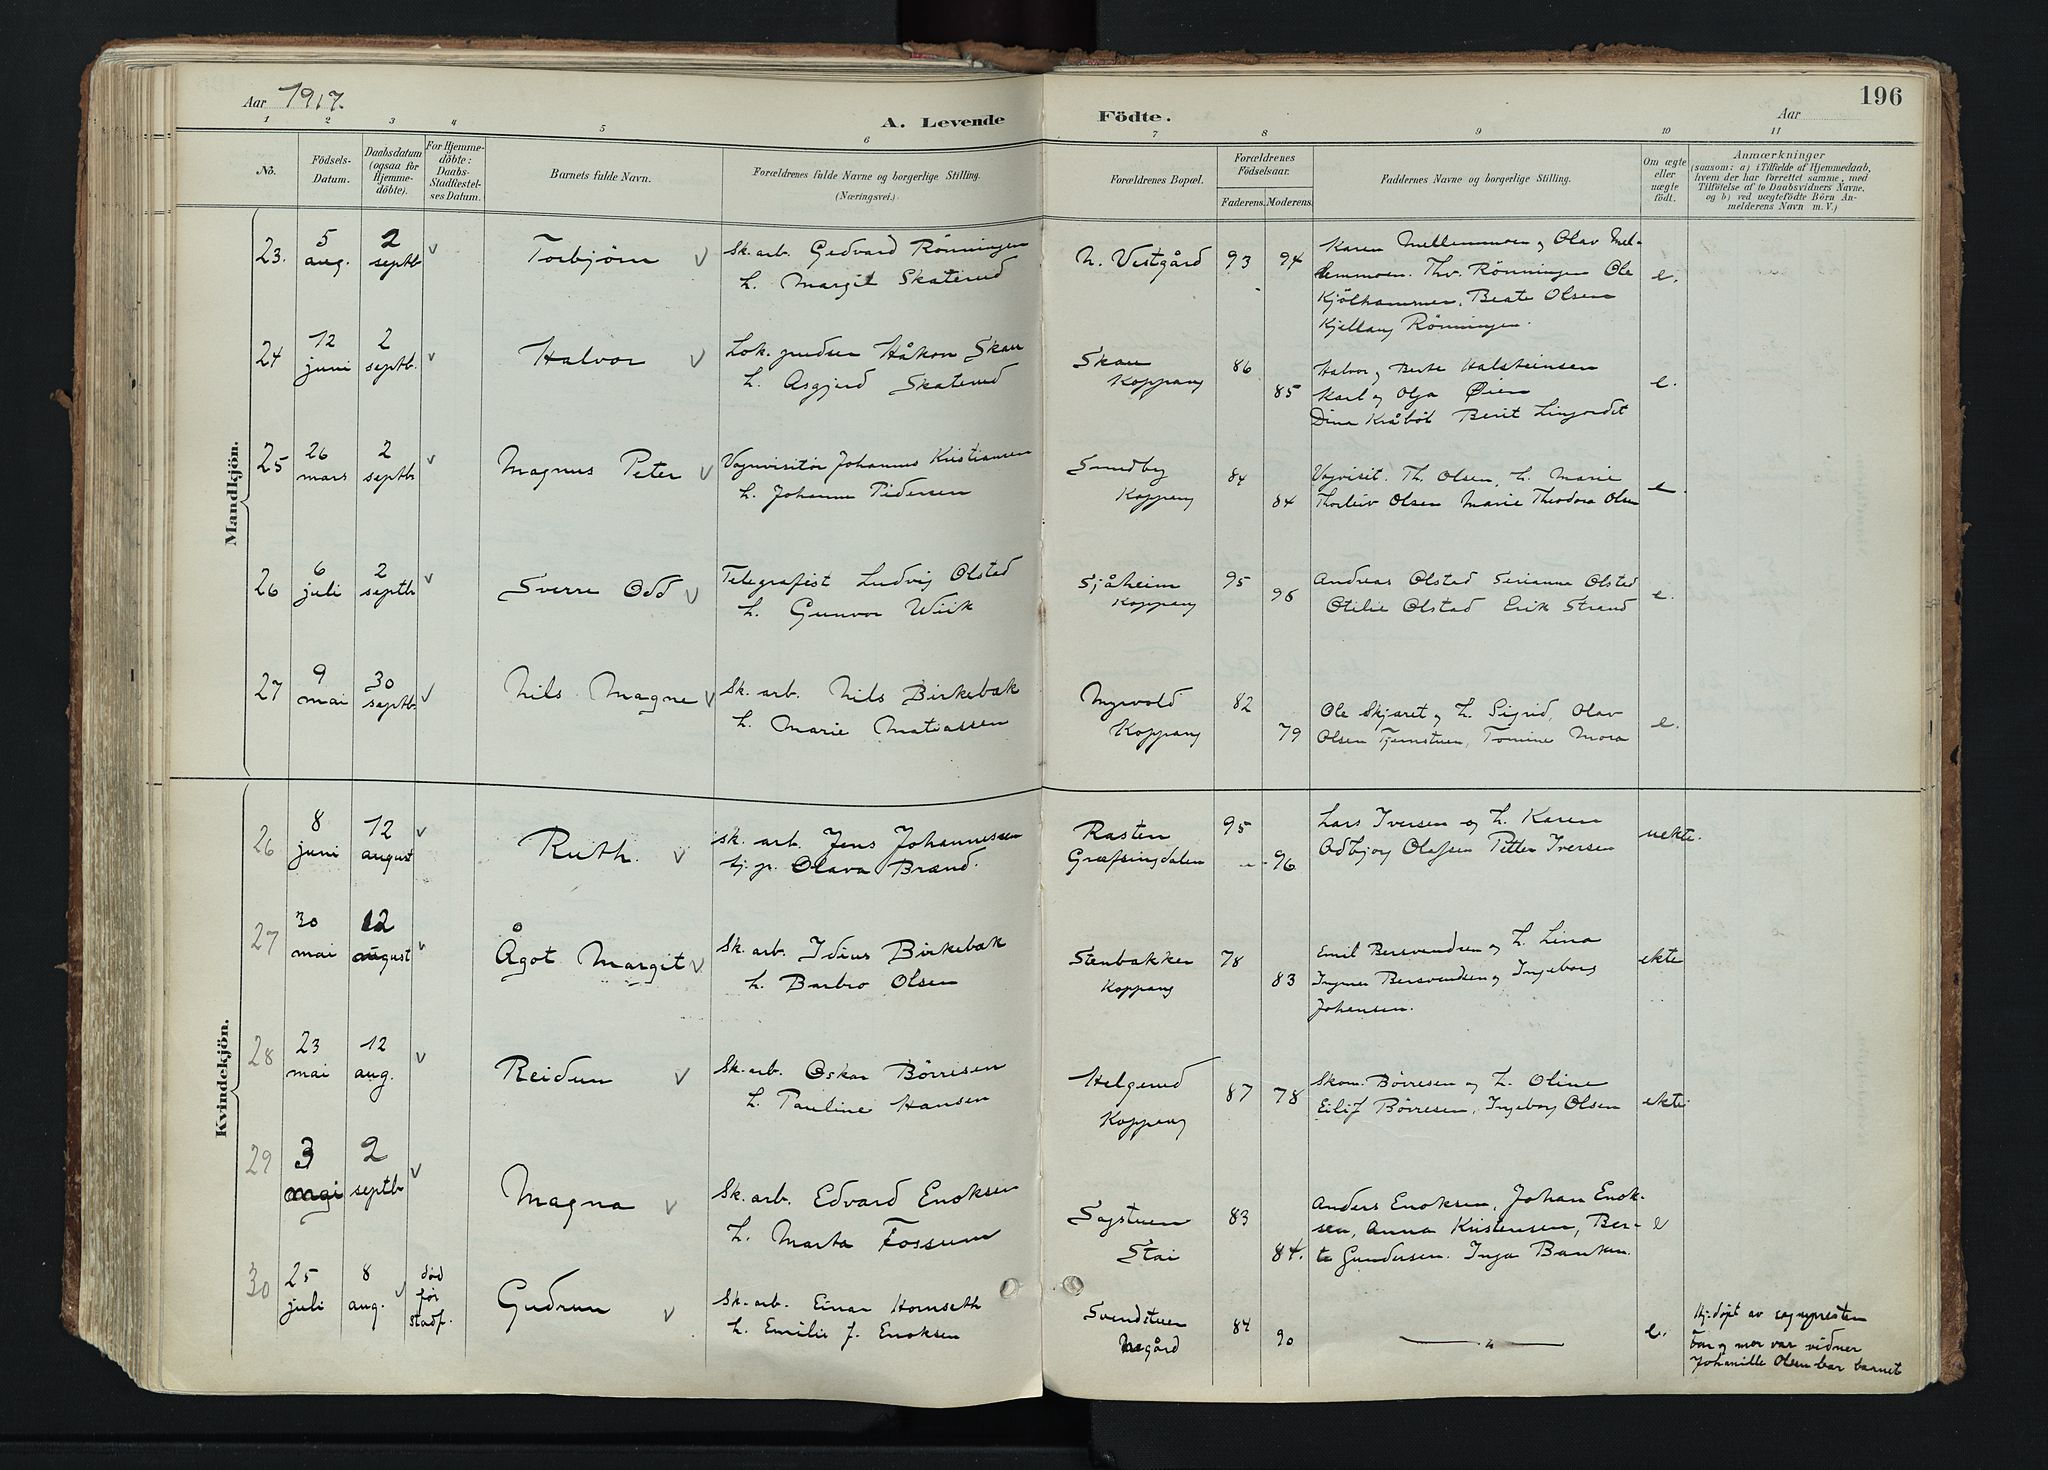 Aar 1917.
A. Levende Födte.
196
Aar
1 2 3 4 5 6 7 8 9 10 11
No.
Födsels-Datum.
Daabsdatum (ogsaa for Hjemme-döbte).
For Hjemme-döbte: Daabs-Stadfæstel-ses Datum.
Barnets fulde Navn.
Forældrenes fulde Navne og borgerlige Stilling. (Næringsvei.)
Forældrenes Bopæl.
Forældrenes Födselsaar.
Faderens. Moderens.
Faddernes Navne og borgerlige Stilling.
Om ægte eller uægte födt.
Anmærkninger
(saasom: a) i Tilfælde af Hjemmedaab, hvem der har forrettet samme, med Tilföielse af to Daabsvidners Navne. og b) ved uægtefödte Börn An-melderens Navn m. V.)
Mandkjön.
23. 5 aug. 2 septb v Torbjörn v Sk. arb. Gedvard Rönningen
h. Margit Skaterud
N. Vestgård 93 94 Karen Mellemmoen og Olav Mel-
lemmoen. Thv. Rönningen Ole
Kjölhammer, Beate Olsen
Kjellaug Rönningen.
e.
24 12 juni 2 septb. v Halvor v Lok. pudser Håkon Skau
h. Asgjerd Skaterud
Skau Koppang 86 85 Halvor og Berte Halsteinsen
Karl og Olga Øien
Dina Kråböl Berit Linjordet
e.
25 26 mars 2 septbr v Magnus Peter v Vognvisitör Johannes Kristiansen
h. Johanne Pedersen
Sundby Koppang 84 84 Vognvisit. Th. Olsen, h. Marie
Thorleiv Olsen Marie Theodora Olsen
e.
26 6 juli 2 septb v Sverre Odd v Telegrafist Ludvig Olstad
h. Gunvor Wiik
Sjåheim Koppang 95 96 Andreas Olstad Serianne Olstad
Otilie Olstad Erik Strand
e.
27 9 mai 30 septb. v Nils Magne v Sk. arb. Nils Birkebæk
h. Marie Matiassen
Myrvold Koppang 82 79 Ole Skjæret og h. Sigrid, Olav
Olsen Tjernstuen, Tomine Mora
e.
Kvindekjön.
26 8 juni 12 august v Ruth. v sk. arb. Jens Johannessen
tj. p. Olava Brænd.
Rasten Græfsingdalen 95 96 Lars Iversen og h. Karen
Odbjörg Olafsen Petter Iversen
uekte.
27 30 mai 12 august v Ågot Margit v Sk. arb. Idius Birkebæk
h. Barbro Olsen
Stenbakken Koppang 78 83 Emil Bersvendsen og h. Lina
Ingmar Bersvendsen og Ingeborg
Johansen.
ekte
28 23 mai 12 aug. v Reidun v Sk. arb. Oskar Börresen
h. Pauline Hansen
Helgerud Koppang 87 78 Skom. Börresen og h. Oline
Eilif Börresen, Ingeborg Olsen
ekte
29 3 mai 2 septb v Magna v Sk. arb. Edvard Enoksen
h. Marta Fossum
Sagstuen Stai 83 84. Anders Enoksen, Johan Enok-
sen, Anna Kristensen, Ber-
te Gundersen. Inga Banken.
e
30 25 juli 8 aug. v död før stadf. Gudrun v Sk. arb. Einar Hornseth
h. Emilie J. Enoksen
Svendstuen Negård 84 90 — " —
e.
Hj. döpt av sognepresten
Far og mor var vidner
Johanille Olsen bar barnet